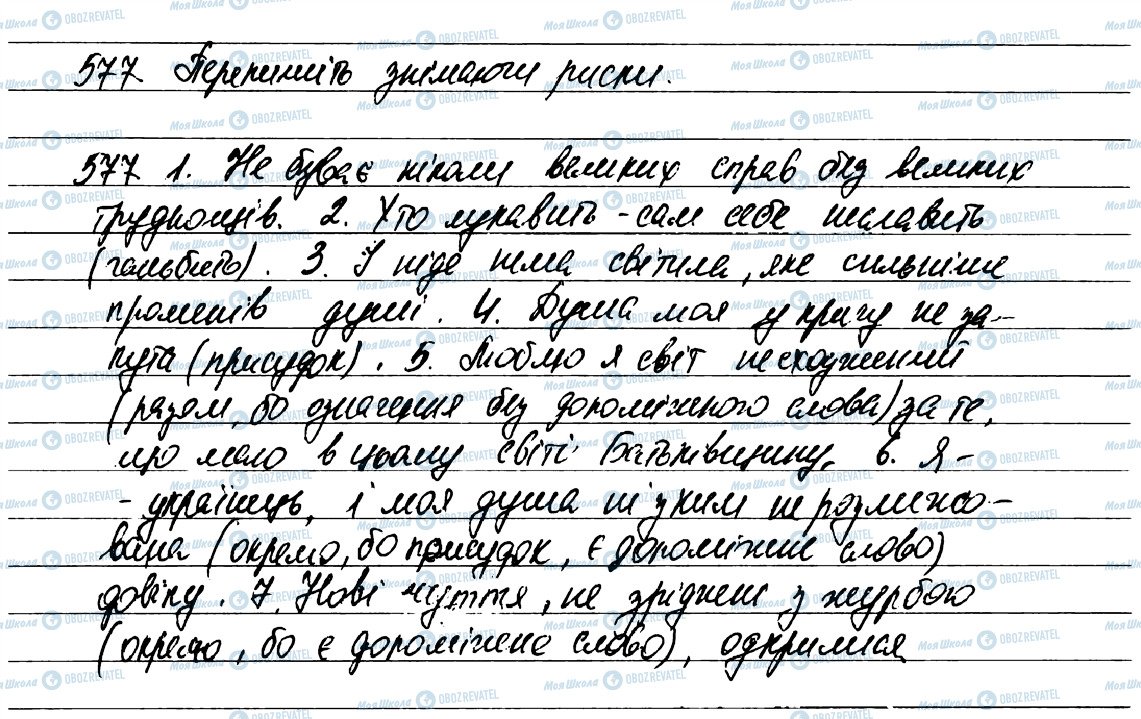 577 Перепишіть знімаючи риски.
577 1. Не буває ніколи великих справ без великих
труднощів. 2. Хто лукавить - сам себе неславить
(ганьбить). 3. І ніде нема світила, яке сильніше
променів душі. 4. Душа моя у кригу не за-
кута (присудок). 5. Люблю я світ несходжений
(разом, бо означення без допоміжного слова) за те,
що маю в цьому світі Батьківщину. 6. Я -
- українець, і моя душа ні з ким не розлинсо-
вана (окремо, бо присудок, є допоміжне слово)
довіку. 7. Нові чуття, не зріднені з журбою
(окремо, бо є допоміжне слово), одкрилися